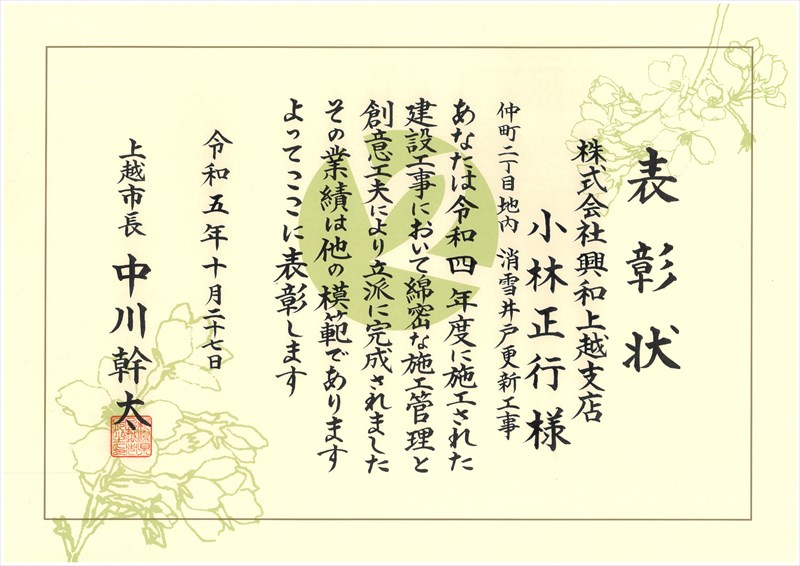 表彰状
株式会社興和上越支店
小林正行様
仲町二丁目地内 消雪井戸更新工事
あなたは令和四年度に施工された
建設工事において綿密な施工管理と
創意工夫により立派に完成されました
その業績は他の模範であります
よってここに表彰します
令和五年十月二十七日
上越市長 中川幹太